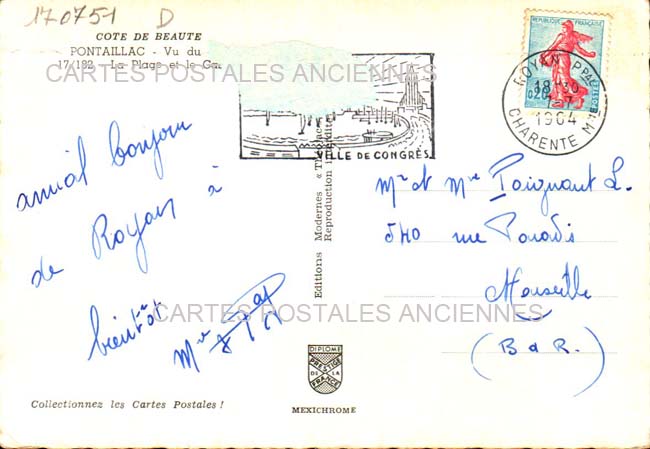 170751 D
COTE DE BEAUTE
PONTAILLAC - Vu du
17/182 - La Plage et le Ca
CARTES POSTALES ANCIENNES
REPUBLIQUE FRANÇAISE
0,20
POSTES
ROYAN PPAL
18 H 30
1-7
1964
CHARENTE MME
VILLE DE CONGRÈS
amical bonjour
de Royan à
bientôt
Editions Modernes « T
Reproduction interdite
Mr et Mme Poignant L.
540 rue Paradis
Marseille
(B d R.)
CARTES POSTALES ANCIENNES
DIPLOME
PRESTIGE
DE LA
FRANCE
Collectionnez les Cartes Postales !
MEXICHROME